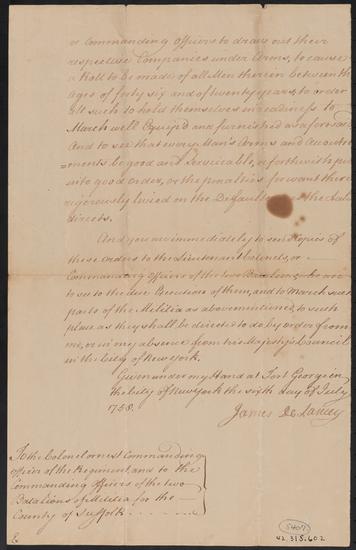 or Commanding Officers to draw out their
respective Companies under Arms, to cause
a Roll to be made of all Men therein between the
ages of forty six and of twenty years, to order
all such to hold themselves in readiness to
March well Equip'd and furnished as aforesaid
And to see that every Man's Arms and Accoutre
=ments be good and Serviceable, or forthwith put
into good order, or the penalties for want thereof
rigorously levied on the Defaulters as the Act
directs.
And you are immediately to send Copies of
these Orders to the Lieutenant Colonels, or
Commanding Officers of the two Batalions who are
to see to the due Execution of them, and to March such
parts of the Militia as abovementioned, to such
place as they shall be directed to do by order from
me, or in my absence from his Majesty's Council
in the City of New York.
Given under my Hand at Fort George in
the City of New York the sixth day of July
1758.
James De Lancey
To the Colonel or next Commanding
officer of the Regiment, and to the
Commanding Officers of the two
Batalions of Militia for the
County of Suffolk
42.315.602